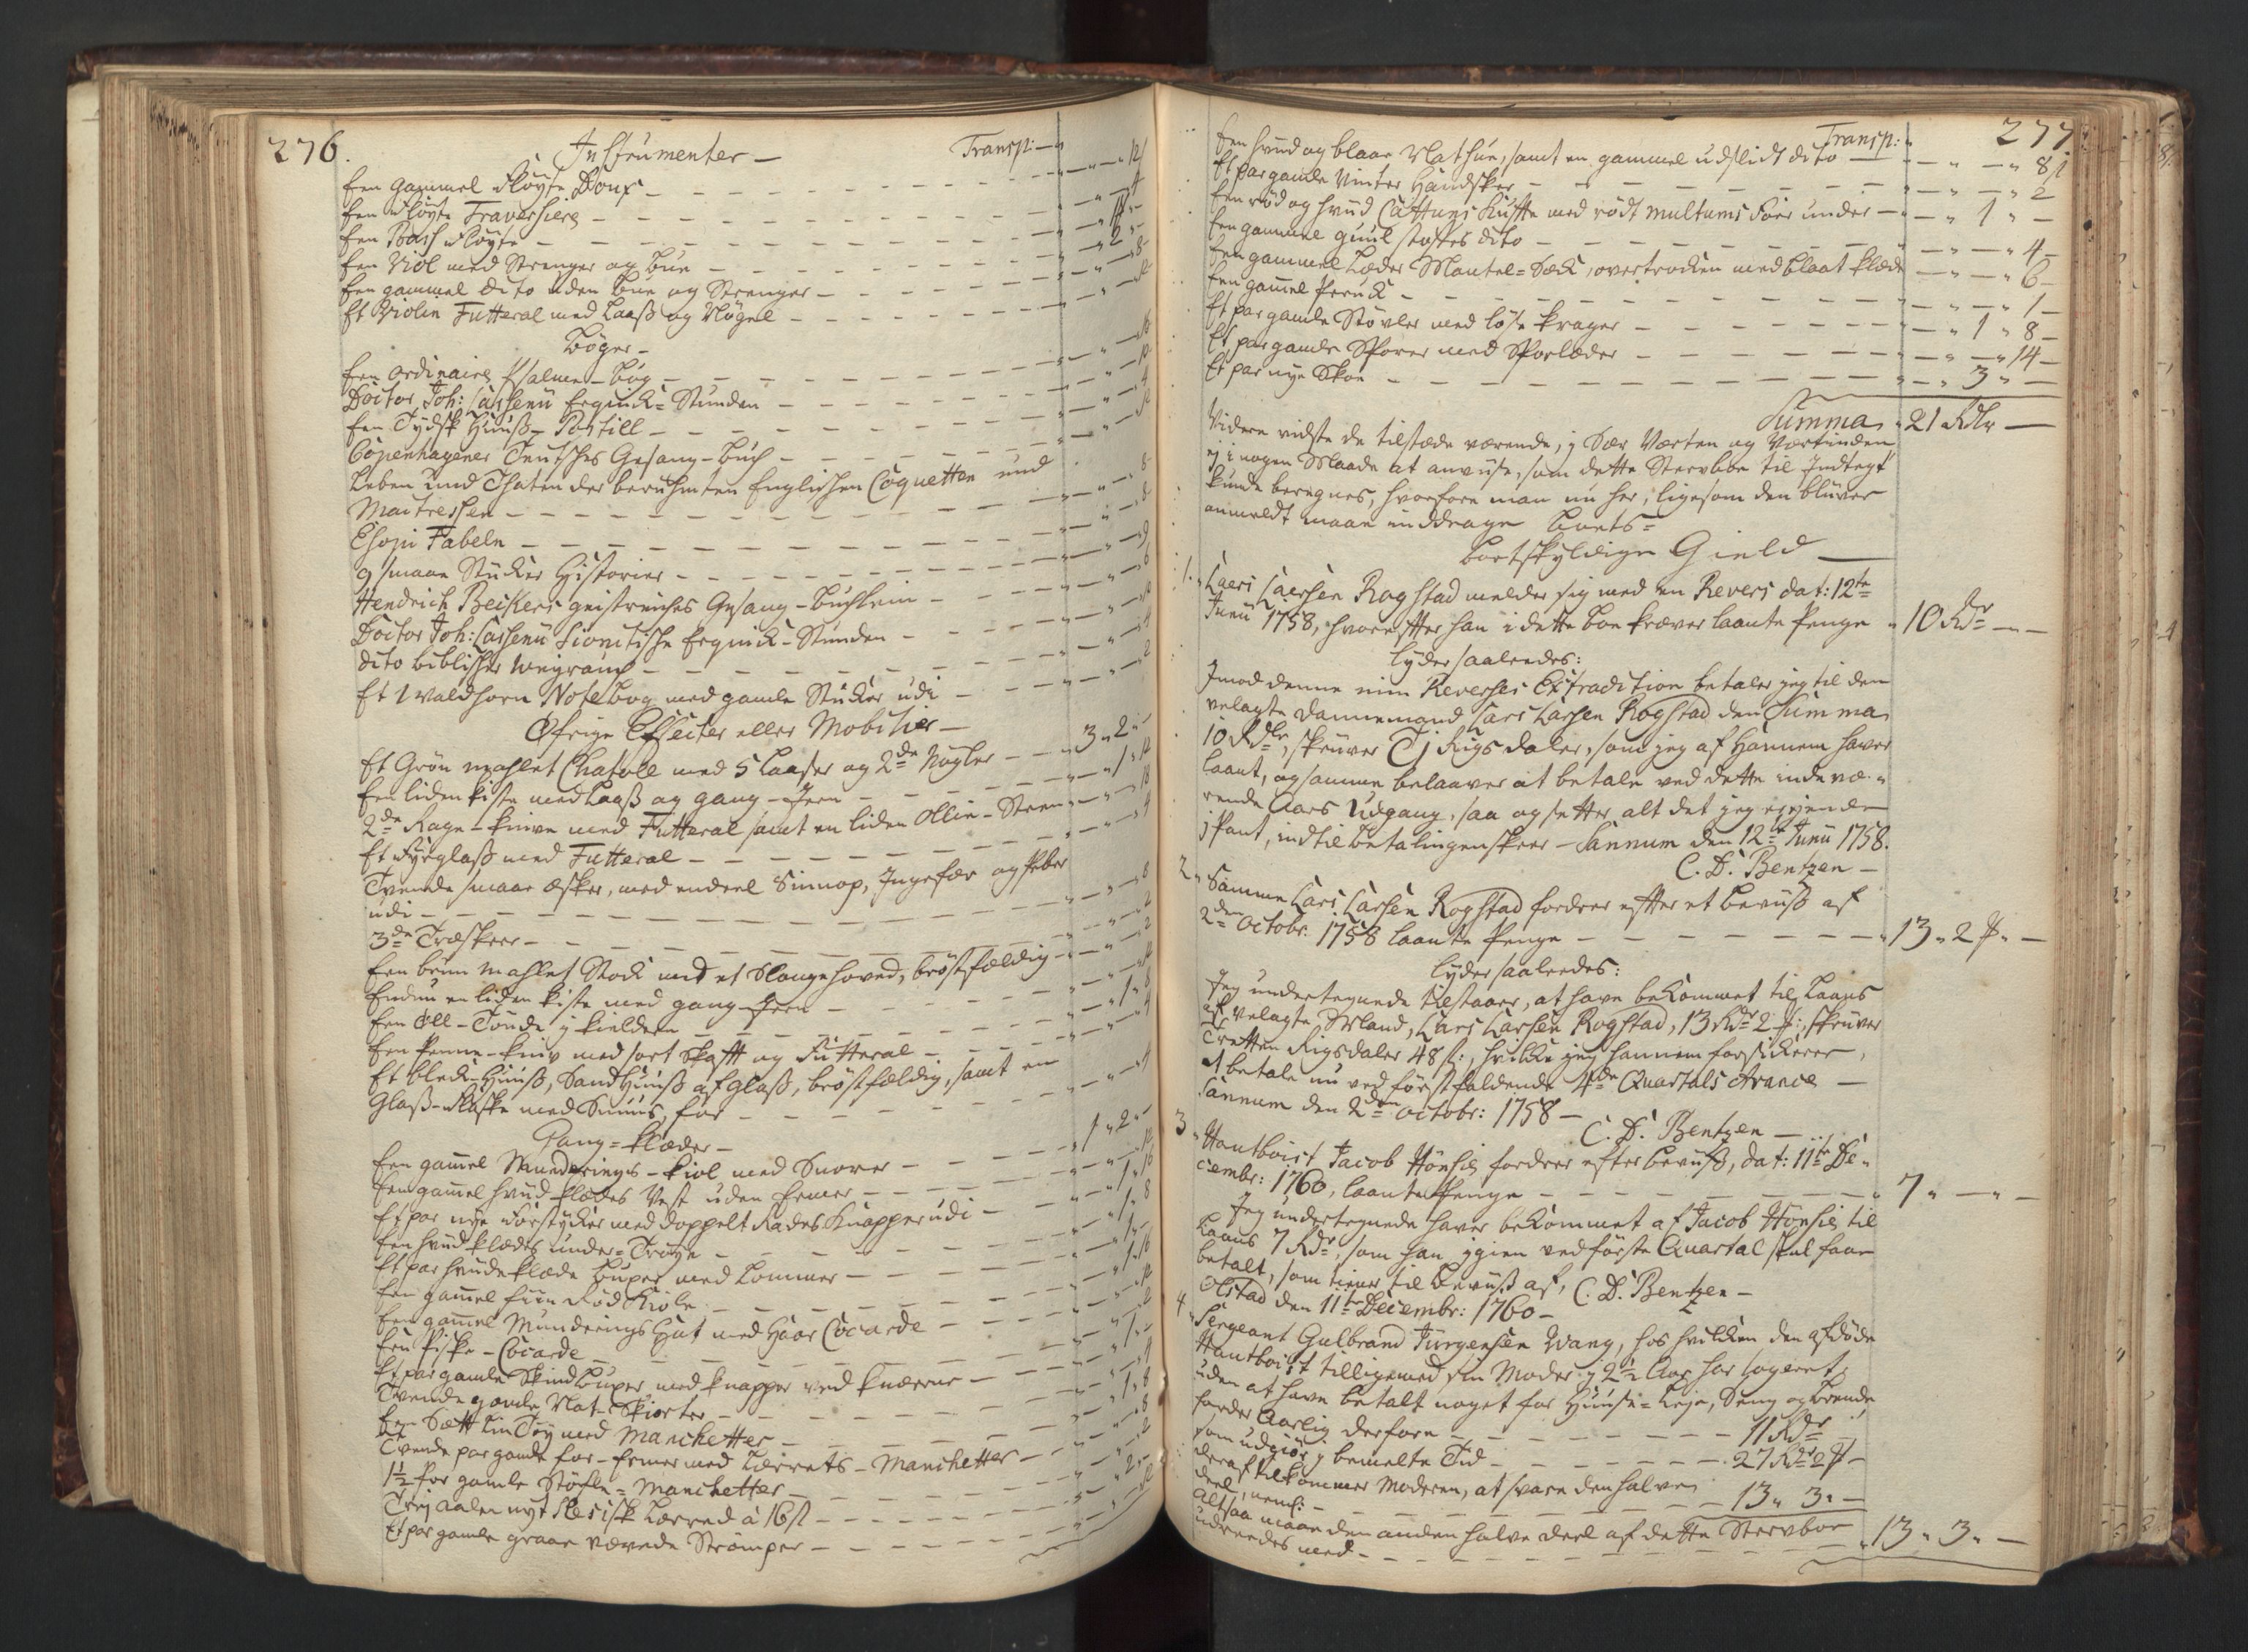 276.
Instrumenter — Transp:—
Een gammel Fløyte Doux —
Een Fløyte Traversiere —
Een Bash Fløyte —
Een Viol med Strenger og Bue —
Een gammel dito uden Bue og Strenger —
Et Violin Futteral med Laaß og Nøgel —
Bøger —
Een ordinaire Psalme-Bog —
Doctor Joh: Lassenii Erquick-Stunden —
Een Tydsk Huuß-Postill —
Copenhagener Teutsches Gesang-Buch —
Leben und Thaten der berühmten Englischen Coquetten und
Maitressen —
Esopi Fabeln —
9 smaae Stücker Historier —
Hendrich Beckers geistreiches Gesang-Büchlein —
Doctor Joh: Lassenii Sionitische Erquick-Stunden —
dito biblischer Weyrauch —
Et Waldhorn Notebog med gamle Stücker udi —
Øfrige Effecter eller Mobilier —
Et Grøn mahlet Chatoll med 5 Laaser og 2de Nøgler — 3 " 2 "
Een liden kiste med Laaß og gang-Jern —
2de Rage-knive med Futteral samt en liden Ollie-Steen
Et Fyrglaß med Futteral —
Tvende smaae Æsker, med endeel Sinnop, Ingefær og Peber
udi —
3de Træskeer —
Een brun mahlet Stock med et Slangehoved, brøstfældig —
Endnu en liden kiste med gang-Jern —
Een Øll-Tønde i kielderen —
Een Penne-kniv med sort Skafft og Futteral —
Et Bleck-Huuß, Sandhuuß af Glaß, brøstfældig, samt en
Glaß-Flaske med Snuus, for —
Gang-klæder —
Een gammel Munderings-kiol med Snorer — 1 " 2 "
Een gammel hvid klædes Vest uden Ermer —
Et par nye Forstycker med doppelt Rades Knapper udi —
Een hvid klædes under-Trøye —
Et par hvide klæde Buxer med Lommer —
Een gammel fiin Rød Kiole —
Een gammel Munderings Hat med Haar Cocarde —
Een Piske-Cocarde —
Et par gamle Skind Buxer med knapper ved knæerne —
Tvende gamle Nat-Skiorter —
Een Sætt Lin Tøy med Manchetter —
Tvende par gamle for-Ermer med Lærrets-Manchetter —
1½ par gamle Støfle-Manchetter —
Trej Aalen nyt Slesisk Lærred à 16 ß —
Et par gamle graae vævede Strømper —
277
Transp:
Een hvid og blaae Nathue, samt en gammel udslidt dito — 8 ß
Et par gamle Vinter Handsker — 2
Een rød og hvid Cattuns Kuffte med rødt multums Foer under — 1 " —
Een gammel guul stoffes dito — 4 —
Een gammel Læder Mantel-Sæck, overtrocken med blaat klæde — 6 —
Een gammel Peruck — 1 —
Et par gamle Støvler med løse krager — 1 " 8 —
Et par gamle Sporer med Sporlæder — 14 —
Et par nye Skoe — 3 " —
Summa " 21 Rdlr —
Videre vidste de tilstæde værende, i Sær Værten og Værtinden
ej i nogen Maade at anviise, som dette Stervboe til Indtegt
kunde beregnes, hvorfore man nu her, ligesom den bliver
anmeldt maae inddrage Boets-
Bortskyldige Gield —
1. Laers Laersen Rogstad melder sig med en Revers dat: 12te
Junii 1758, hvorefter han i dette Boe kræver laante Penge " 10 Rdr —
lyder saaledes:
Imod denne min Reverses Extradition betaler jeg til den
velagte Dannemand Lars Larsen Rogstad den Summa
10 Rdlr, skriver Tj Rigsdaler, som jeg af Hannem haver
laant, og samme belaaver at betale ved dette indevæ-
rende Aars Udgang, saa og setter alt det jeg er ejende
i Pant, indtil betalingen skeer — Sannum den 12te Junii 1758.
C. D. Bentzen —
2. Samme Lars Larsen Rogstad fordrer efter et Beviiß af
2den Octobr: 1758 laante Penge — 13 " 2 ₰ " —
lyder saaledes:
Jeg undertegnede tilstaaer, at have bekommet til Laans
af velagte Mand, Lars Larsen Rogstad, 13 Rdr 2 ₰:, skriver
Tretten Rigsdaler 48 ß:, hvilke jeg hannem forsickerer,
at betale nu ved førstfaldende 4de Quartals Avance —
Sannum den 2den Octobr: 1758 —
C. D. Bentzen —
3. Hautboist Jacob Hønsie fordrer efter beviiß, dat: 11te De-
cembr: 1760, laante Penge — 7 " — " —
Jeg undertegnede haver bekommet af Jacob Hønsie til
Laans 7 Rdr, som han igien ved første Quartal skal faae
betalt, som tiener til Beviiß af, C. D. Bentzen —
Olstad den 11te Decembr: 1760 —
4. Sergeant Gulbrand Jürgensen Wang, hos hvilken den afdøde
Hautboist tilligemed sin Moder i 2½ Aar har logeret,
uden at have betalt noget for Huuse-Leje, Seng og brænde,
forder Aarlig derfore — 11 Rdr
som udgiør i bemelte Tid — 27 Rdr 2 ₰ —
deraf tilkommer Moderen, at svare den halve
deel, neml: — 13 " 3 " —
altsaa maae den anden halve deel af dette Stervboe
udreedes med — 13 " 3 " —